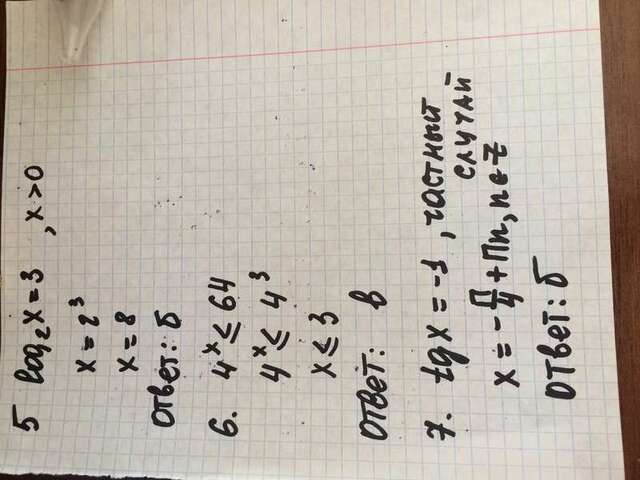 5 log₂x = 3 , x > 0
x = 2³
x = 8
Ответ: б
6. 4ˣ ≤ 64
4ˣ ≤ 4³
x ≤ 3
Ответ: в
7. tgx = -1 , частный
случай
x = -П/4 + Пn, n ∈ Z
Ответ: б